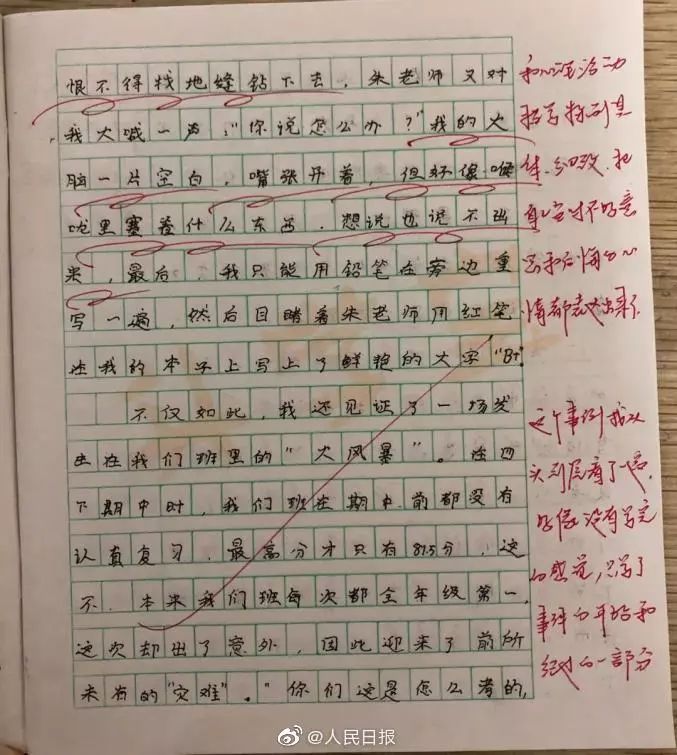 恨不得找地缝钻下去，朱老师又对
我大喊一声："你说怎么办？"我的大
脑一片空白，嘴张开着，但好像喉
咙里塞着什么东西，想说也说不出
来，最后，我只能用铅笔在旁边重
写一遍，然后目睹着朱老师用红笔
在我的本子上写上了鲜艳的大字"B+"
不仅如此，我还见证了一场发
生在我们班里的"大风暴"。在四
下期中时，我们班在期中前都没有
认真复习，最高分才只有87.5分，这
不，本来我们班每次都全年级第一，
这次却出了意外，因此迎来了前所
未有的"灾难"。"你们这是怎么考的，
和心理活动
描写特别具
体、细致，把
自己当时不好意
思和后悔的心
情都表达出来了
这个事例我从
头到尾看了一遍，
好像没有写完
的感觉，只写了
事件的开始和
经过的一部分
@人民日报